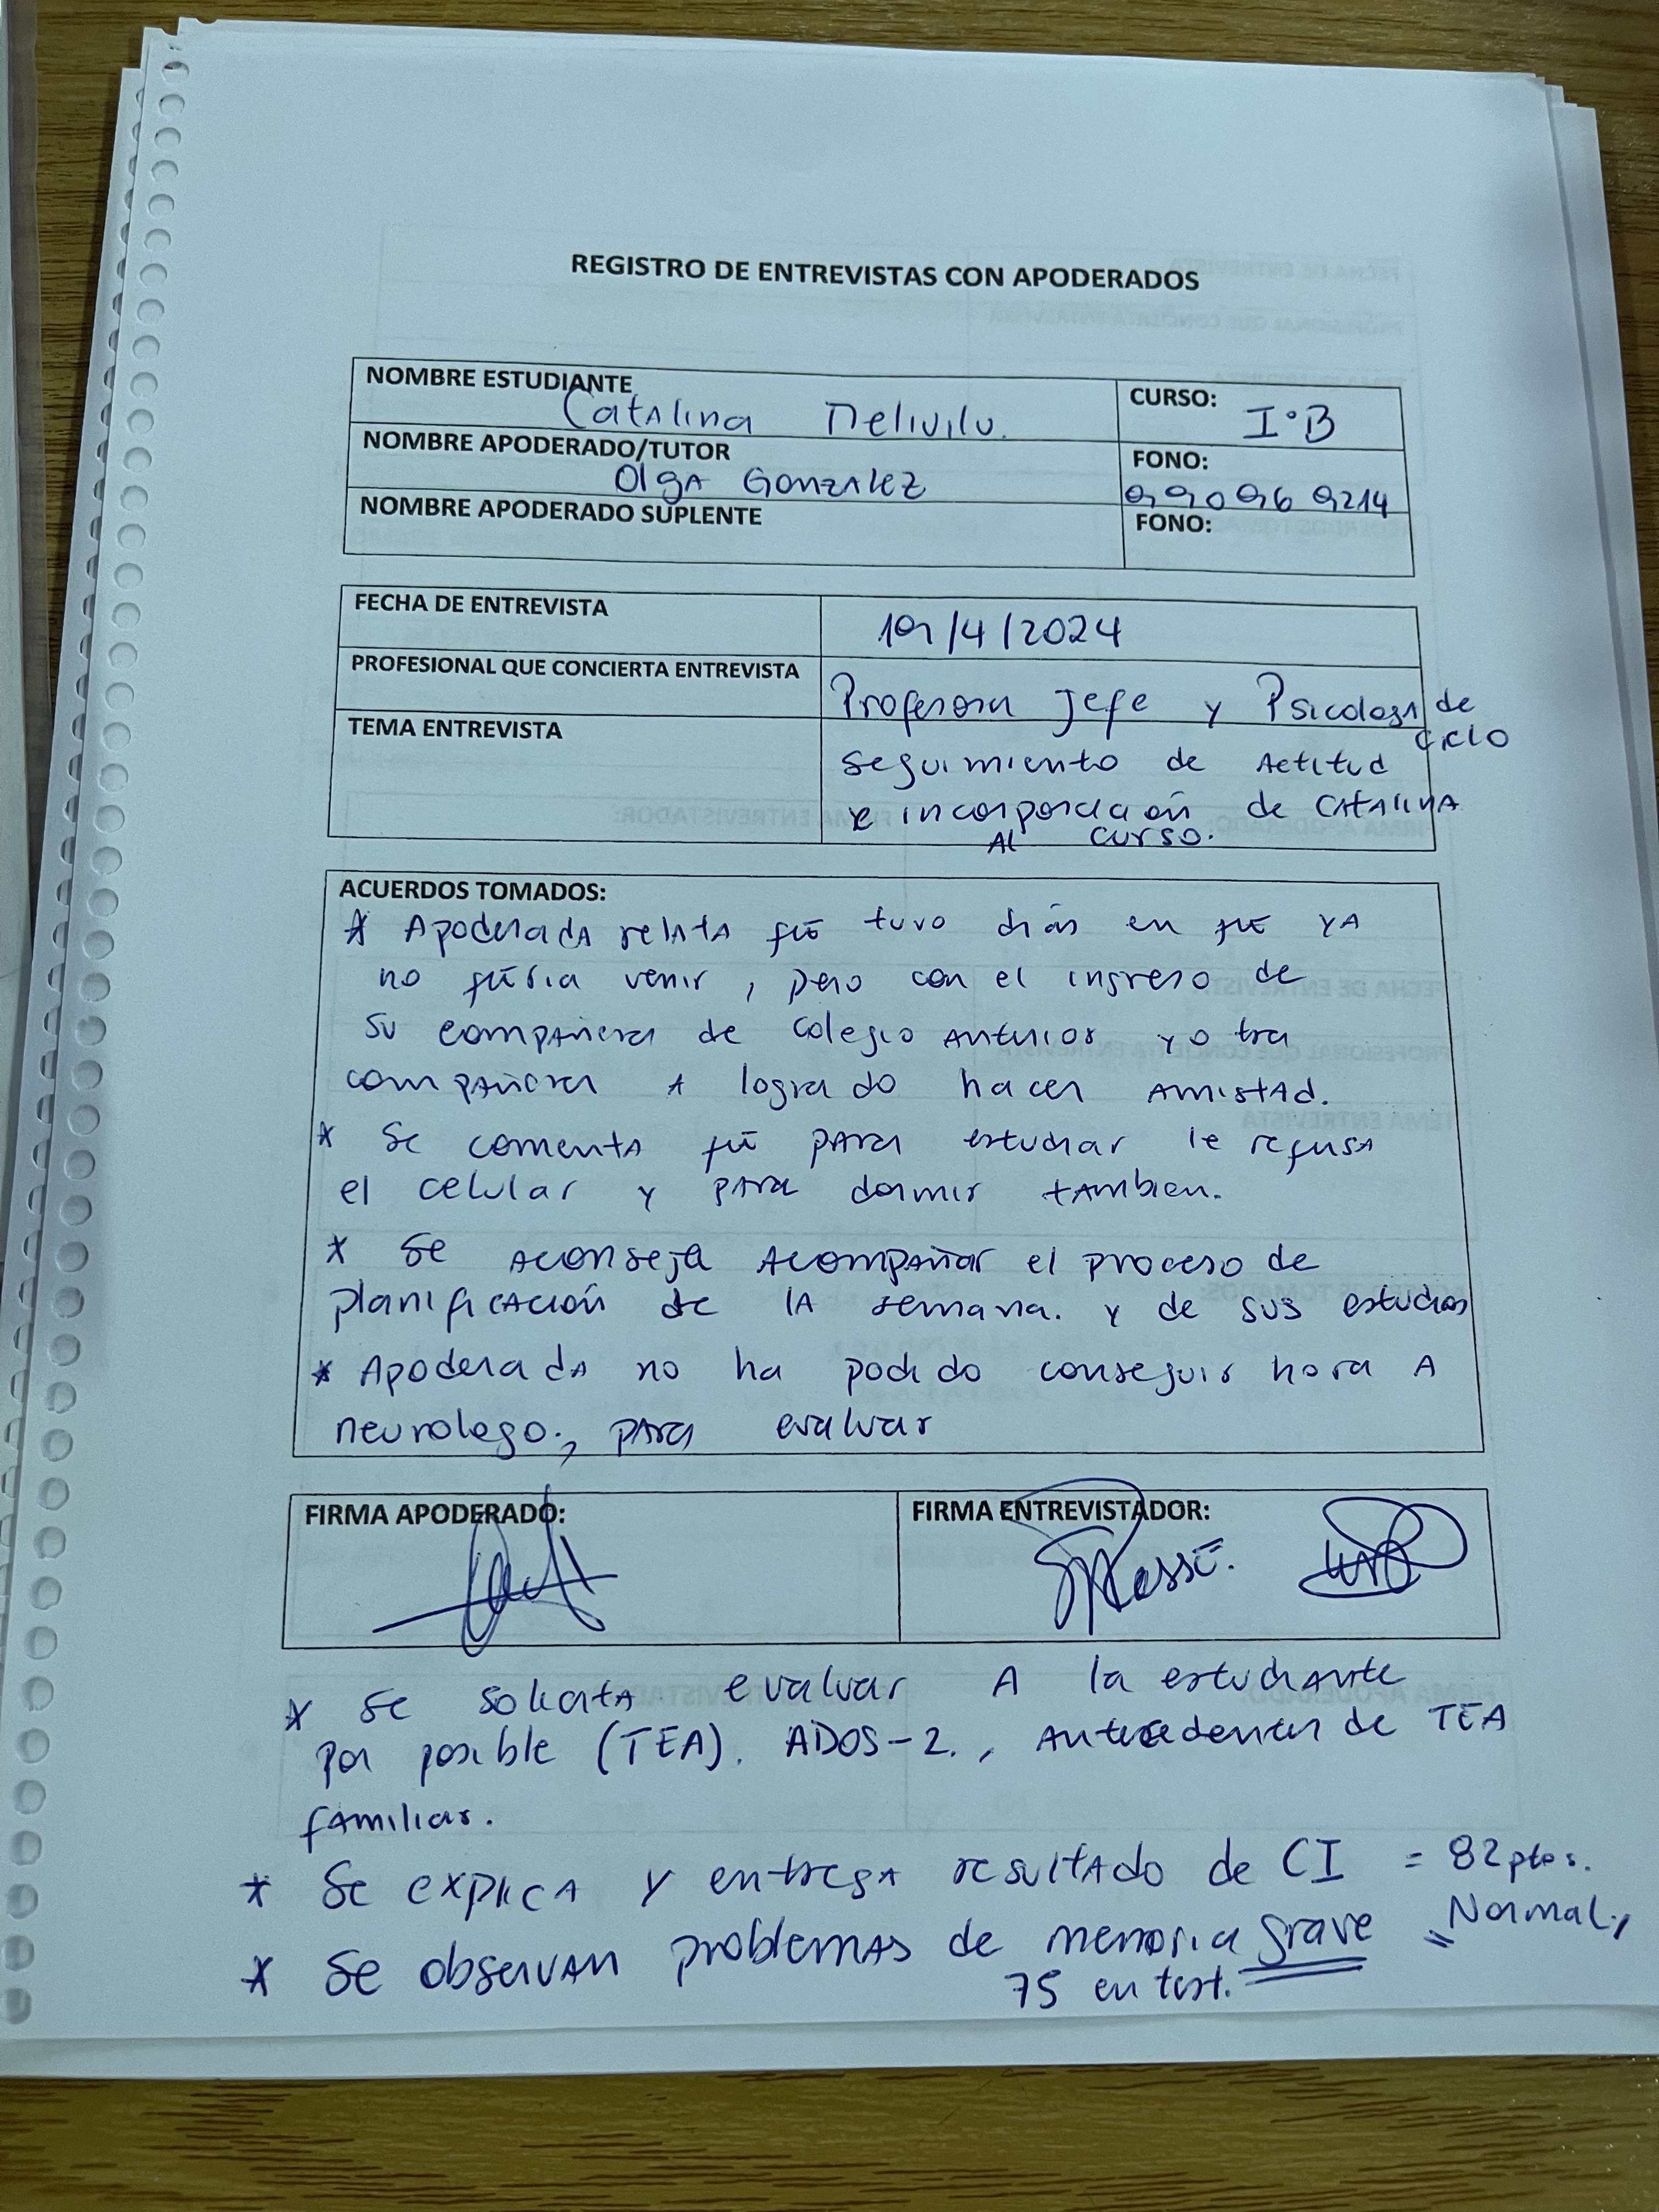 REGISTRO DE ENTREVISTAS CON APODERADOS
NOMBRE ESTUDIANTE Catalina Melivilu. CURSO: I°B
NOMBRE APODERADO/TUTOR Olga Gonzalez FONO: 990969214
NOMBRE APODERADO SUPLENTE FONO:
FECHA DE ENTREVISTA 19/4/2024
PROFESIONAL QUE CONCIERTA ENTREVISTA Profesora Jefe y Psicologa de ciclo
TEMA ENTREVISTA seguimiento de Actitud
e incorporación de Catalina
al curso.
ACUERDOS TOMADOS:
* Apoderada relata que tuvo días en que ya
no quería venir, pero con el ingreso de
su compañera de colegio anterior y otra
compañera a logrado hacer amistad.
* Se comenta que para estudiar le requisa
el celular y para dormir tambien.
* Se aconseja acompañar el proceso de
planificación de la semana. y de sus estudios
* Apoderada no ha podido conseguir hora a
neurologo., para evaluar
FIRMA APODERADO: FIRMA ENTREVISTADOR:
* Se solicita evaluar a la estudiante
por posible (TEA). ADOS-2., Antecedentes de TEA
familiar.
* Se explica y entrega resultado de CI = 82 ptos.
Normal.,
* Se observan problemas de memoria grave
75 en test.